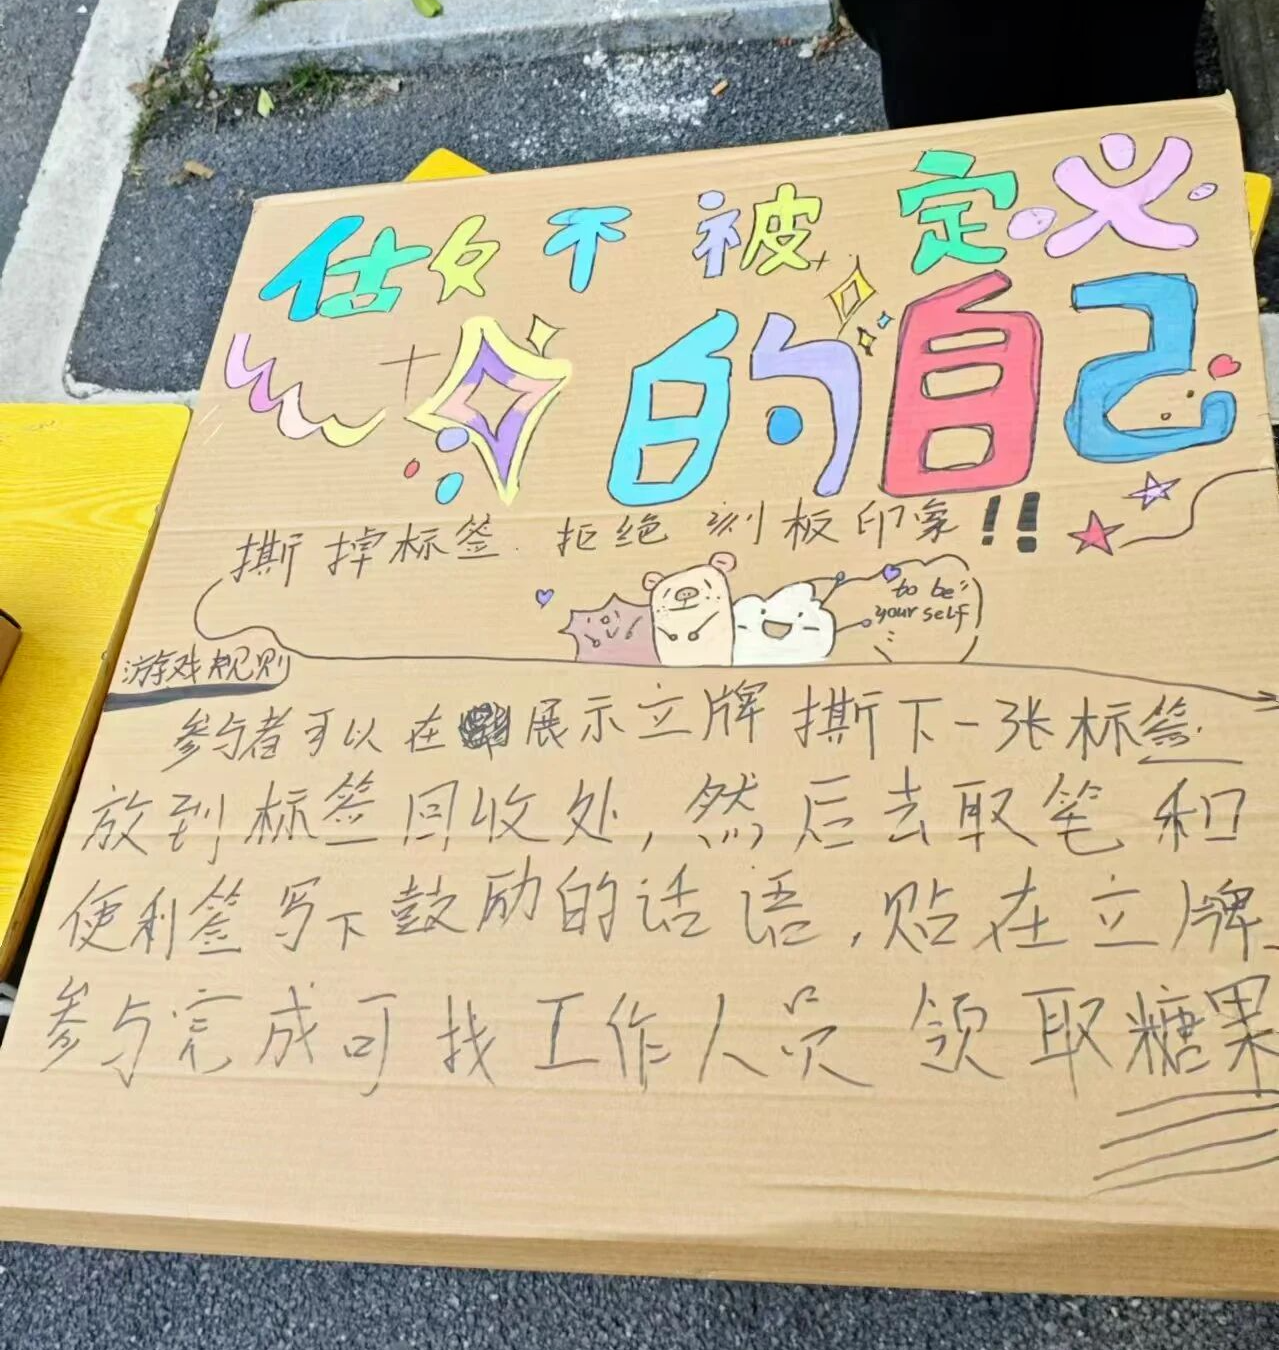 做不被定义
的自己
撕掉标签 拒绝刻板印象!!
to be
yourself
游戏规则
参与者可以在展示立牌撕下一张标签
放到标签回收处,然后去取笔和
便利签写下鼓励的话语,贴在立牌
参与完成可找工作人员领取糖果